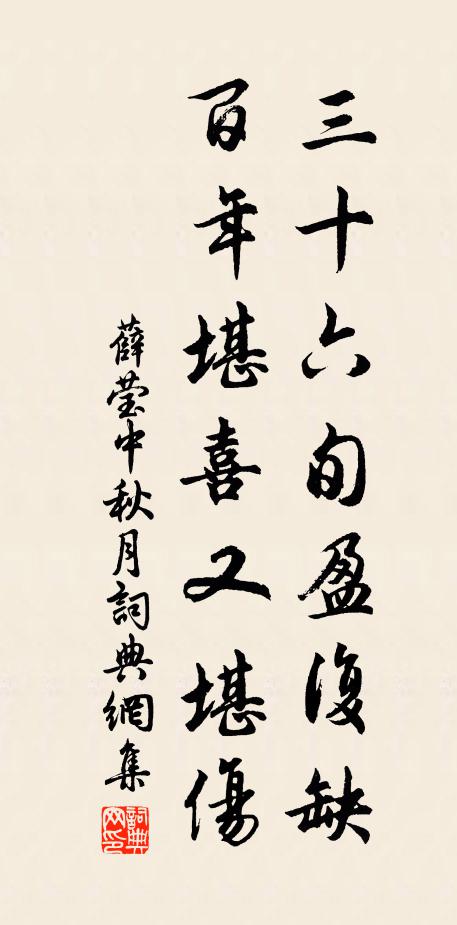 三十六旬盈復缺
百年堪喜又堪傷
薛瑩中秋月詞典網集
詞典網印